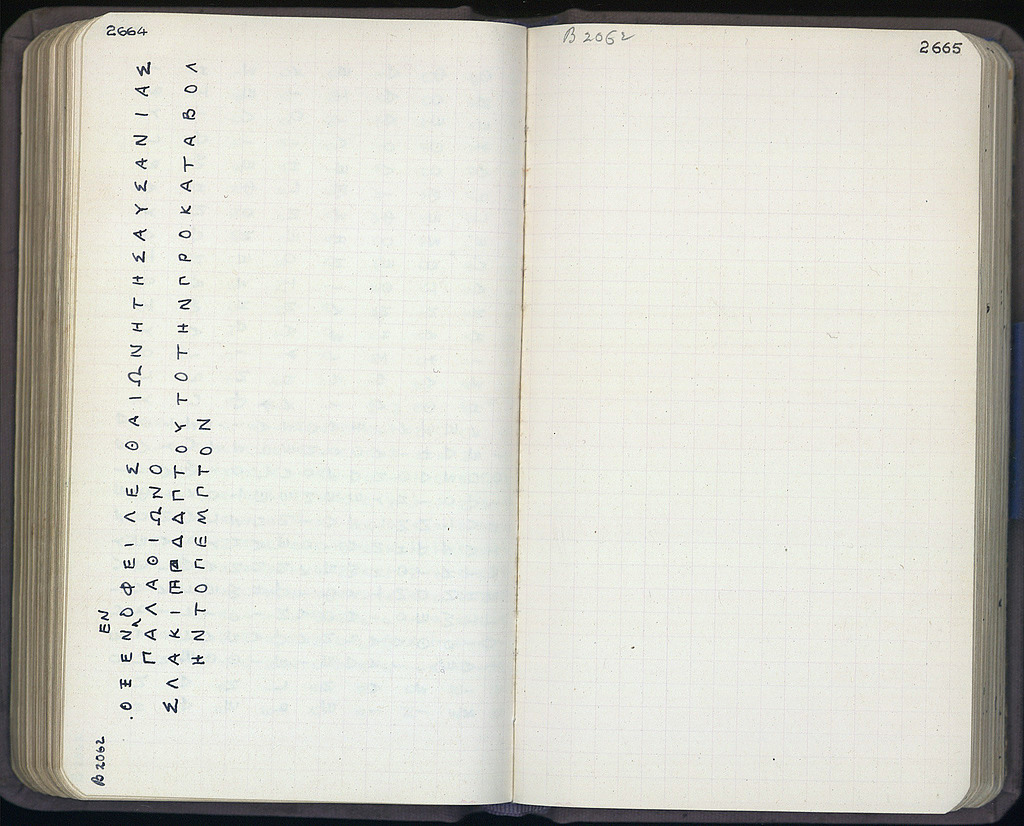 2664
B 2062
ΕΝ
.ΟΞΕΝ^ΟΦΕΙΛΕΣΘΑΙΩΝΗΤΗΣΑΥΣΑΝΙΑΣ
ΠΑΛΑΘΙΩΝΟ
ΣΛΑΚΙ ΔΔΠΤΟΥΤΟΤΗΝΠΡΟΚΑΤΑΒΟΛ
ΗΝΤΟΠΕΜΠΤΟΝ
B 2062
2665